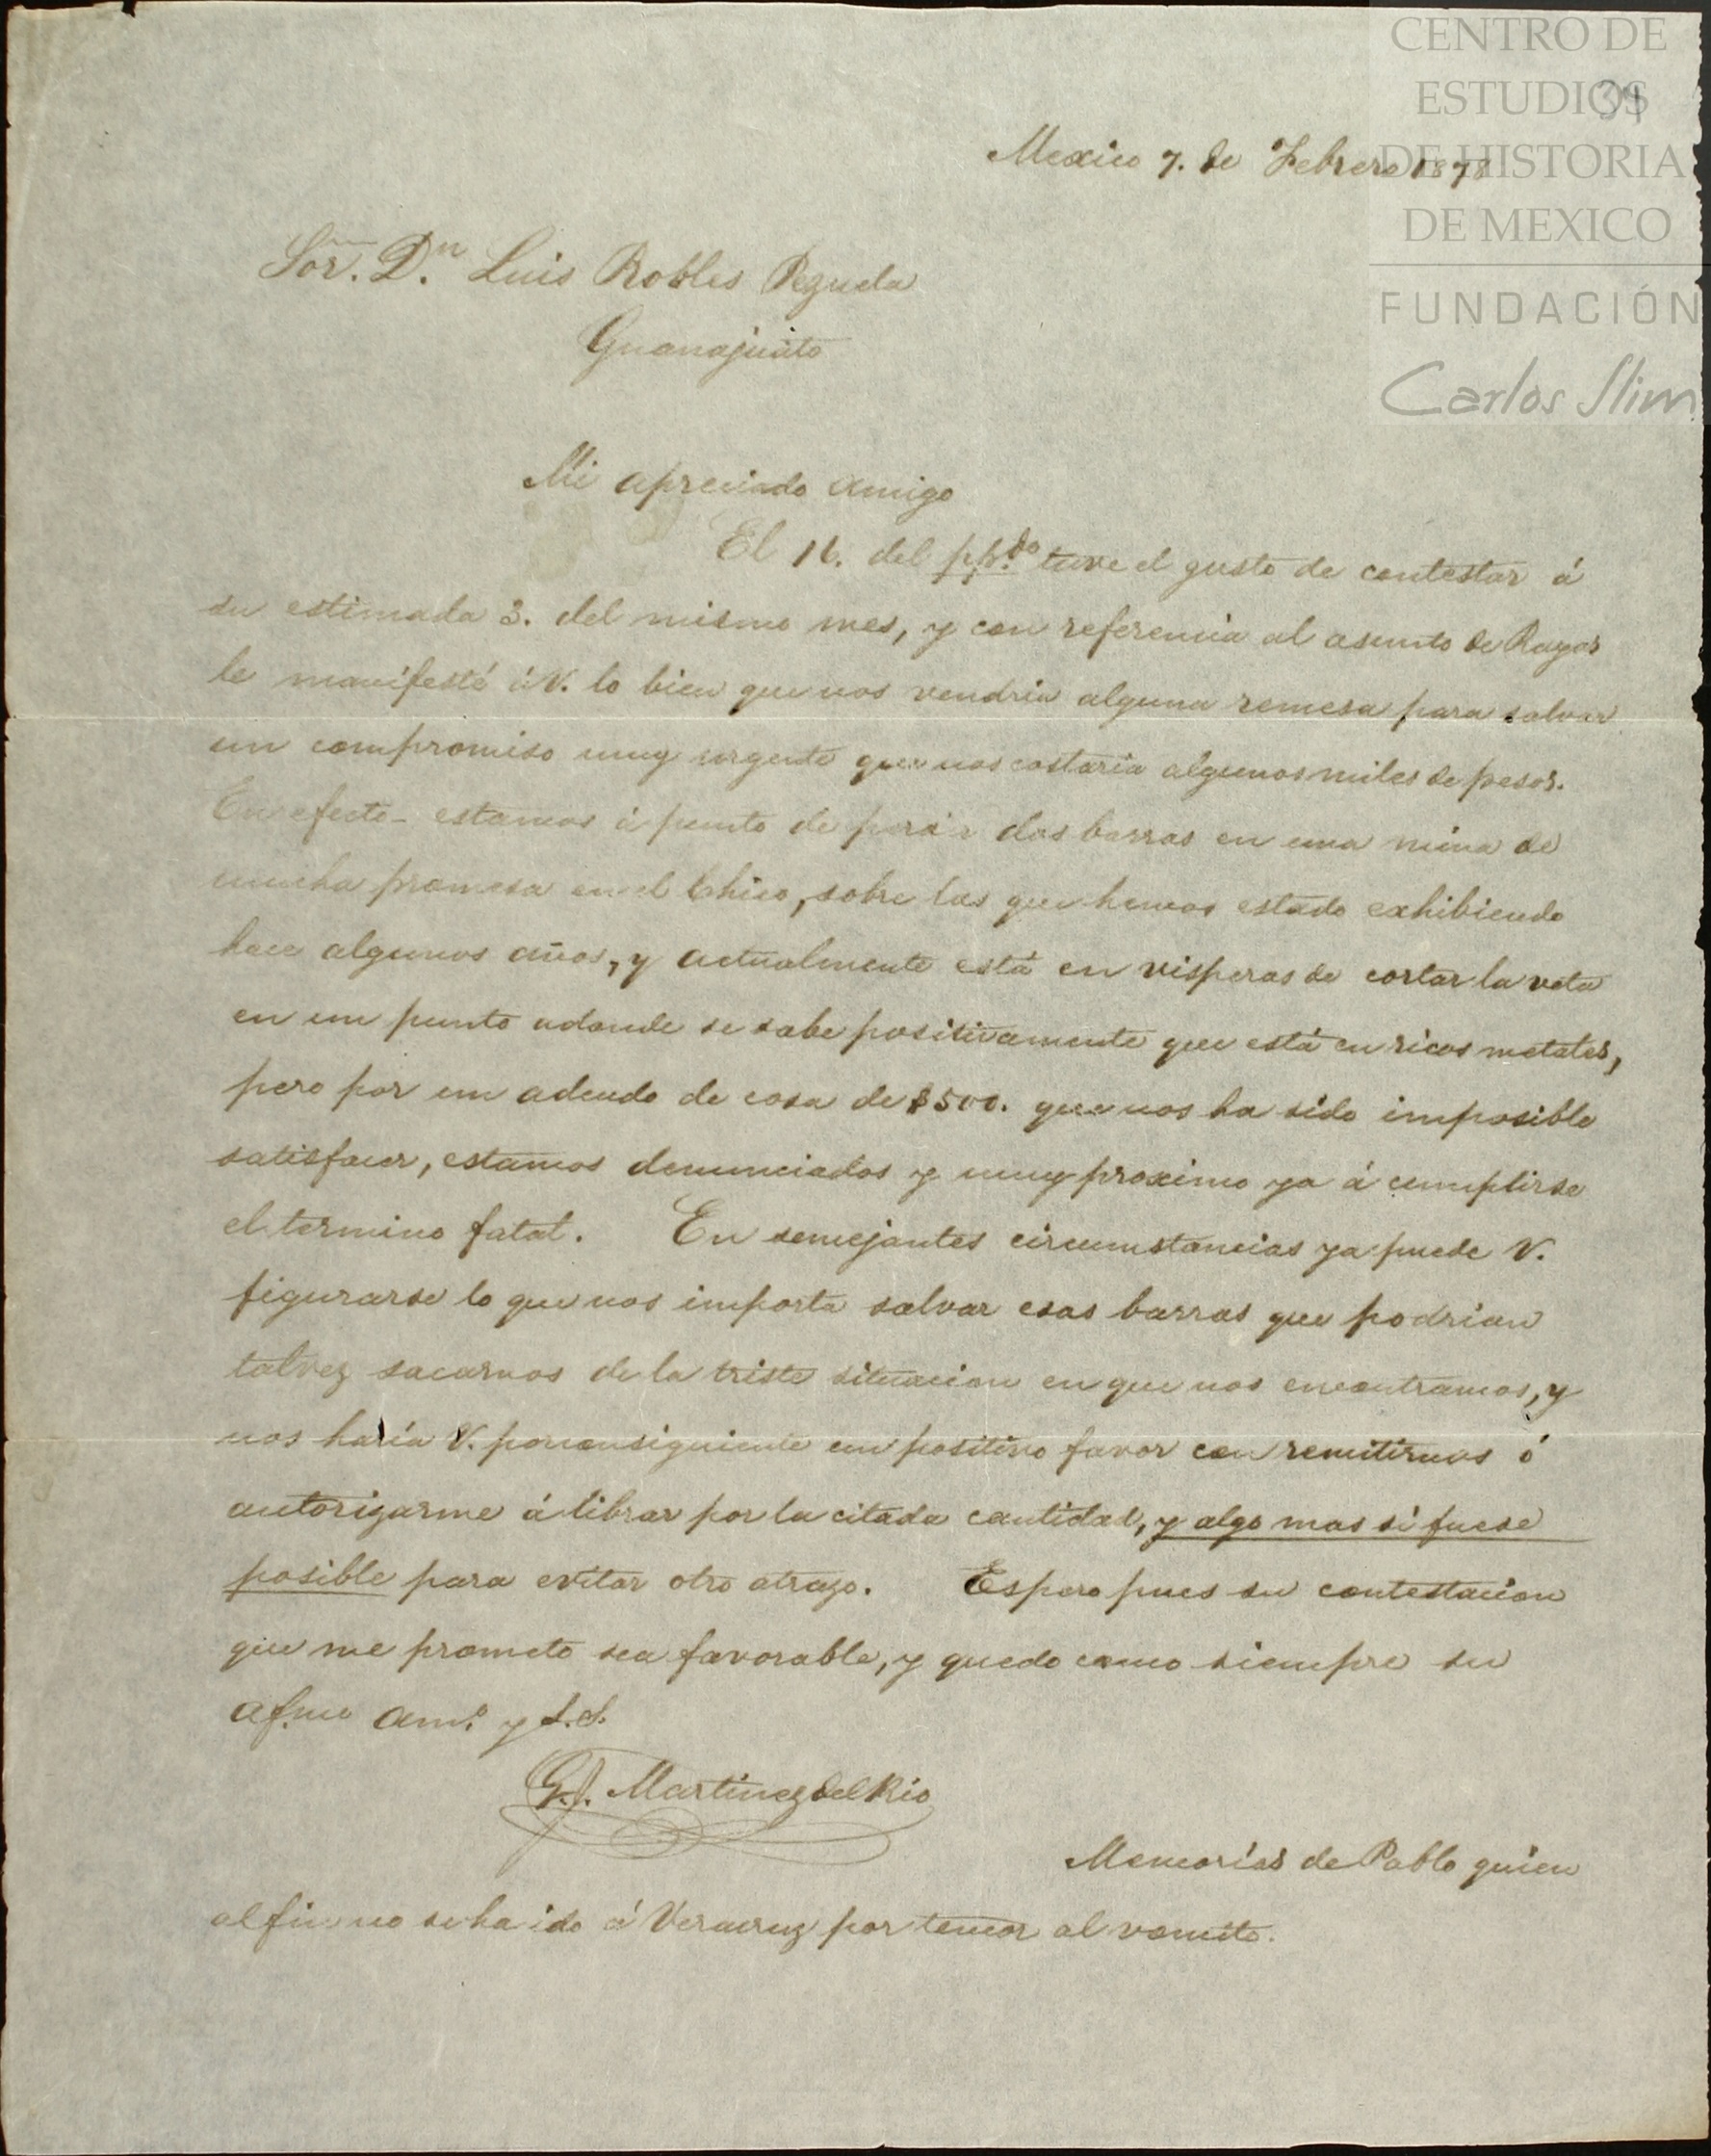 CENTRO DE
ESTUDIOS
DE HISTORIA
DE MEXICO
FUNDACIÓN
Carlos Slim
39
Mexico 7. de Febrero 1878
Sor. Dn. Luis Robles Pezuela
Guanajuato
Mi apreciado amigo
El 16. del ppdo. tuve el gusto de contestar á
su estimada 3. del mismo mes, y con referencia al asunto de Rayas
le manifesté á V. lo bien que nos vendria alguna remesa para salvar
un compromiso muy urgente que nos costaria algunos miles de pesos.
En efecto estamos á punto de dos barras en una mina de
mucha promesa en el Chico, sobre las que hemos estado exhibiendo
hace algunos años, y actualmente está en visperas de cortar la veta
en un punto adonde se sabe positivamente que está en ricos metales,
pero por un adeudo de cosa de $500. que nos ha sido imposible
satisfacer, estamos denunciados y muy proximo ya á cumplirse
el termino fatal. En semejantes circumstancias ya puede V.
figurarse lo que nos importa salvar esas barras que podrian
talvez sacarnos de la triste situacion en que nos encontramos, y
nos haría V. por consiguiente un positivo favor con remitirnos ó
autorizarme á librar por la citada cantidad, y algo mas si fuese
posible para evitar otro atrazo. Espero pues su contestacion
que me prometo sea favorable, y quedo como siempre su
afmo amo. y S.S.
Martinez del Rio
Memorias de Pablo quien
al fin no se ha ido á Veracruz por temor al vomito.